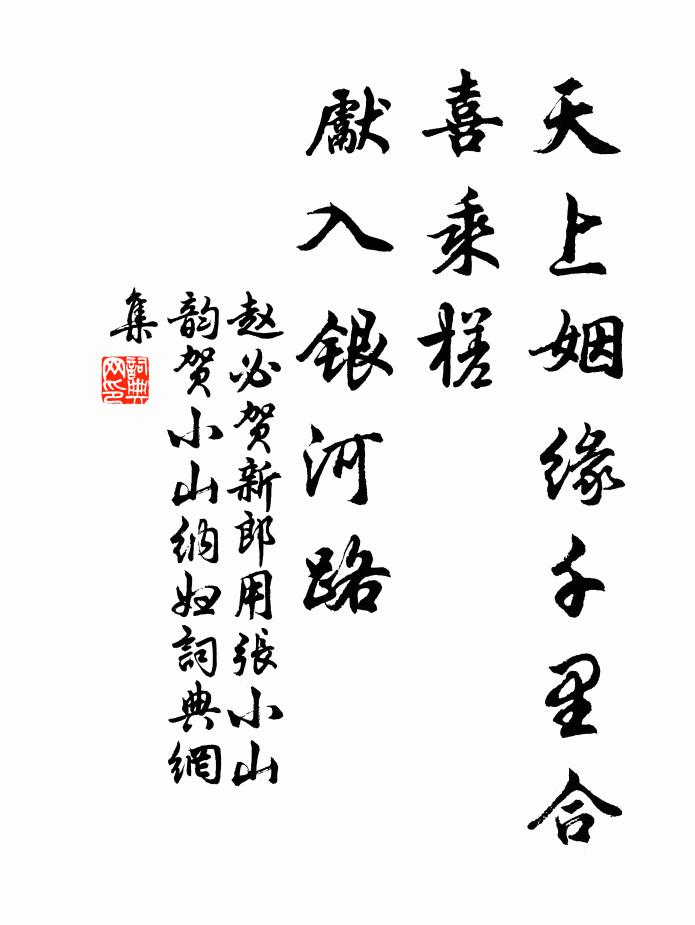 天上姻缘千里合
喜乘槎
獻入銀河路
赵必贺新郎用張小山
韵贺小山纳妇詞典網
集
詞典
网印